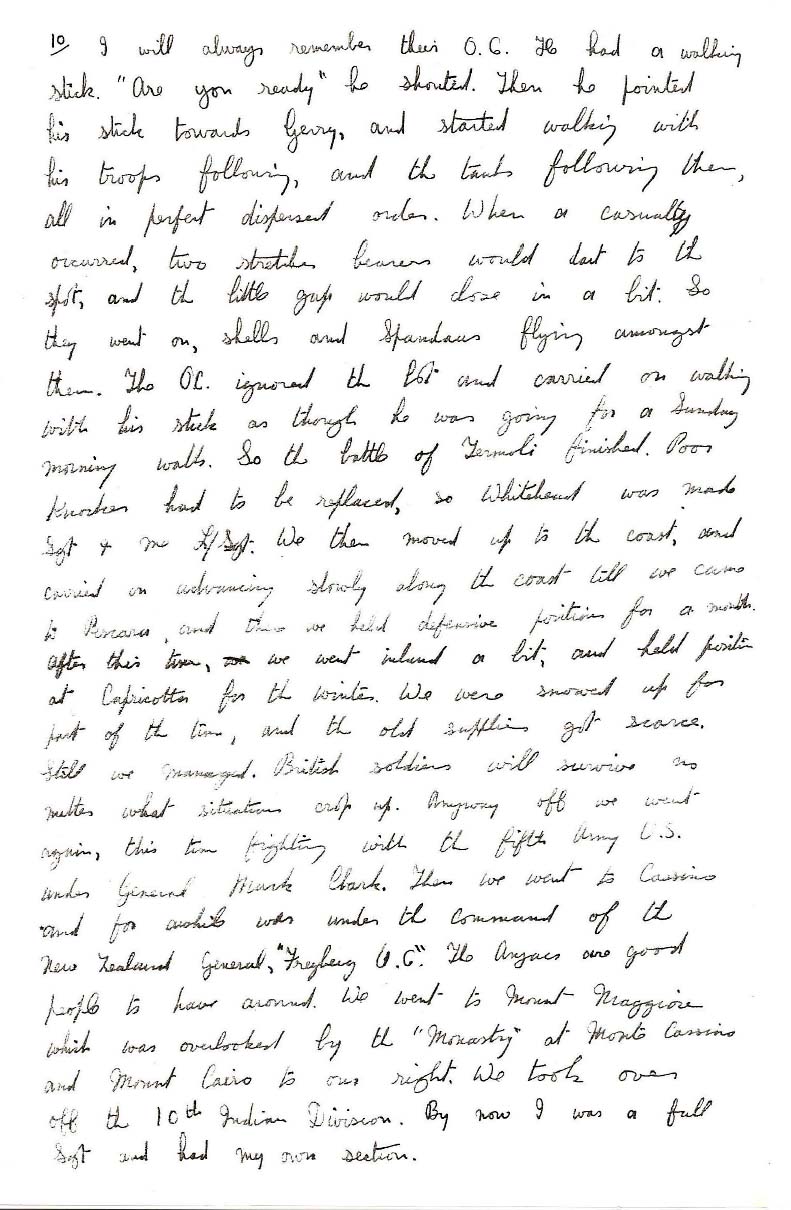 10/ I will always remember their O.C. He had a walking
stick. "Are you ready" he shouted. Then he pointed
his stick towards Gerry, and started walking with
his troops following, and the tanks following them,
all in perfect dispersed order. When a casualty
occurred, two stretcher bearers would dart to the
spot, and the little gap would close in a bit. So
they went on, shells and Spandaus flying amongst
them. The OC. ignored the lot and carried on walking
with his stick as though he was going for a Sunday
morning walk. So the battle of Termoli finished. Poor
Knocker had to be replaced, so Whitehead was made
Sgt & me L/Sgt. We then moved up to the coast, and
carried on advancing slowly along the coast till we came
to Pescara, and there we held defensive positions for a month.
After this time, we went inland a bit, and held position
at Capricotta for the winter. We were snowed up for
part of the time, and the old supplies got scarce.
Still we managed. British soldiers will survive no
matter what situations crop up. Anyway off we went
again, this time fighting with the fifth Army U.S.
under General Mark Clark. Then we went to Cassino
and for awhile was under the command of the
New Zealand General, "Freyberg V.C". The Anzacs are good
people to have around. We went to Mount Maggiore
which was overlooked by the "Monastry" at Monte Cassino
and Mount Cairo to our right. We took over
off the 10th Indian Division. By now I was a full
Sgt and had my own section.